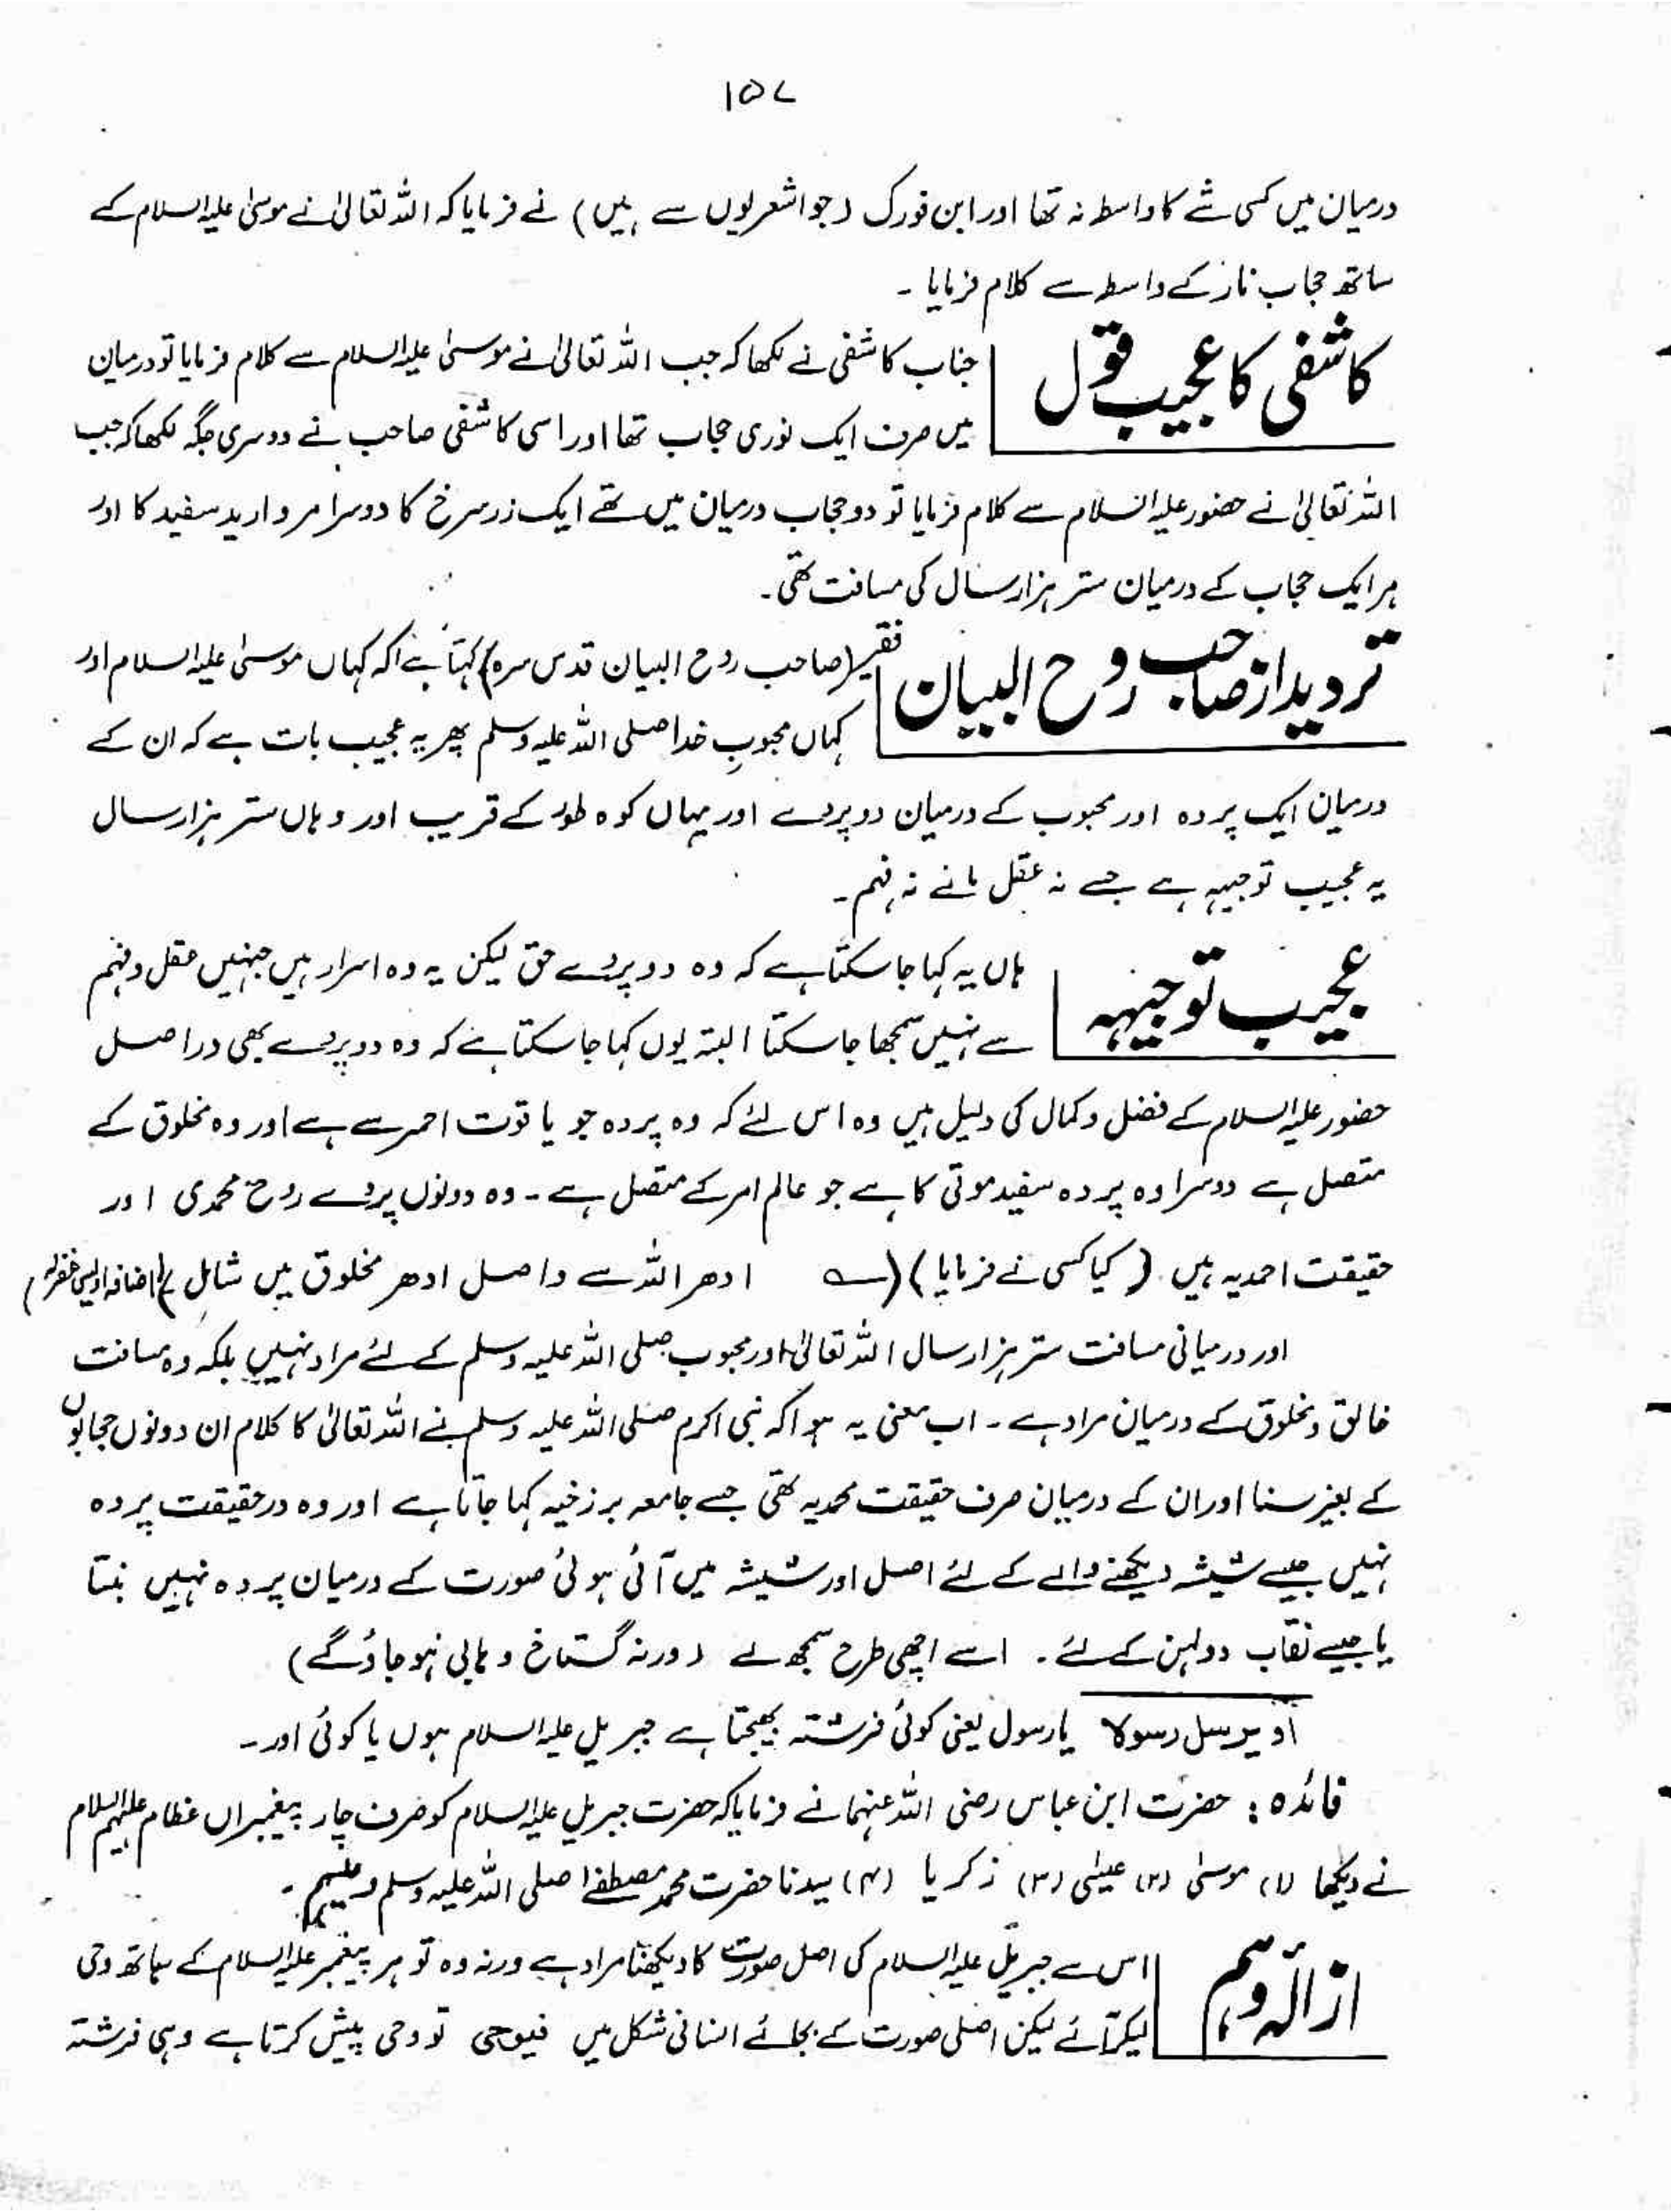 ۱۵۷
درمیان میں کسی شے کا واسطہ نہ تھا اور ابن فورک (جو اشعریوں سے ہیں) نے فرمایا کہ اللہ تعالیٰ نے موسیٰ علیہ السلام کے
ساتھ حجاب نار کے واسطہ سے کلام فرمایا ۔
کاشفی کا عجیب قول
جناب کاشفی نے لکھا کہ جب اللہ تعالیٰ نے موسیٰ علیہ السلام سے کلام فرمایا تو درمیان
میں صرف ایک نوری حجاب تھا اور اسی کاشفی صاحب نے دوسری جگہ لکھا کہ جب
اللہ تعالیٰ نے حضور علیہ السلام سے کلام فرمایا تو دو حجاب درمیان میں تھے ایک زر سرخ کا دوسرا مروارید سفید کا اور
ہر ایک حجاب کے درمیان ستر ہزار سال کی مسافت تھی ۔
تردید از صاحب روح البیان
فقیر (صاحب روح البیان قدس سرہ) کہتا ہے کہ کہاں موسیٰ علیہ السلام اور
کہاں محبوبِ خدا صلی اللہ علیہ وسلم پھر یہ عجیب بات ہے کہ ان کے
درمیان ایک پردہ اور محبوب کے درمیان دو پردے اور یہاں کوہ طور کے قریب اور وہاں ستر ہزار سال
یہ عجیب توجیہہ ہے جسے نہ عقل مانے نہ فہم ۔
عجیب توجیہہ
ہاں یہ کہا جا سکتا ہے کہ وہ دو پردے حق لیکن یہ وہ اسرار ہیں جنہیں عقل و فہم
سے نہیں سمجھا جا سکتا البتہ یوں کہا جا سکتا ہے کہ وہ دو پردے بھی دراصل
حضور علیہ السلام کے فضل و کمال کی دلیل ہیں وہ اس لئے کہ وہ پردہ جو یاقوت احمر سے ہے اور وہ مخلوق کے
متصل ہے دوسرا وہ پردہ سفید موتی کا ہے جو عالم امر کے متصل ہے ۔ وہ دونوں پردے روح محمدی اور
حقیقت احمدیہ ہیں (کیا کسی نے فرمایا) (؎ ادھر اللہ سے واصل ادھر مخلوق میں شامل) (اضافہ اویسی غفرلہ)
اور درمیانی مسافت ستر ہزار سال اللہ تعالیٰ اور محبوب صلی اللہ علیہ وسلم کے لئے مراد نہیں بلکہ وہ مسافت
خالق و مخلوق کے درمیان مراد ہے ۔ اب معنی یہ ہوا کہ نبی اکرم صلی اللہ علیہ وسلم نے اللہ تعالیٰ کا کلام ان دونوں حجابوں
کے بغیر سنا اور ان کے درمیان صرف حقیقت محمدیہ تھی جسے جامعہ برزخیہ کہا جاتا ہے اور وہ درحقیقت پردہ
نہیں جیسے شیشہ دیکھنے والے کے لئے اصل اور شیشہ میں آئی ہوئی صورت کے درمیان پردہ نہیں بنتا
یا جیسے نقاب دولہن کے لئے ۔ اسے اچھی طرح سمجھ لے (ورنہ گستاخ وہابی ہو جاؤ گے)
أو یرسل رسولا یا رسول یعنی کوئی فرشتہ بھیجتا ہے جبریل علیہ السلام ہوں یا کوئی اور ۔
فائدہ : حضرت ابن عباس رضی اللہ عنہما نے فرمایا کہ حضرت جبریل علیہ السلام کو صرف چار پیغمبراں عظام علیہم السلام
نے دیکھا (۱) موسیٰ (۲) عیسٰی (۳) زکریا (۴) سیدنا حضرت محمد مصطفےٰ صلی اللہ علیہ وسلم وعلیہم ۔
ازالہ وہم
اس سے جبریل علیہ السلام کی اصل صورت کا دیکھنا مراد ہے ورنہ وہ تو ہر پیغمبر علیہ السلام کے ساتھ وحی
لیکر آئے لیکن اصلی صورت کے بجائے انسانی شکل میں فیوحی تو وحی پیش کرتا ہے وہی فرشتہ